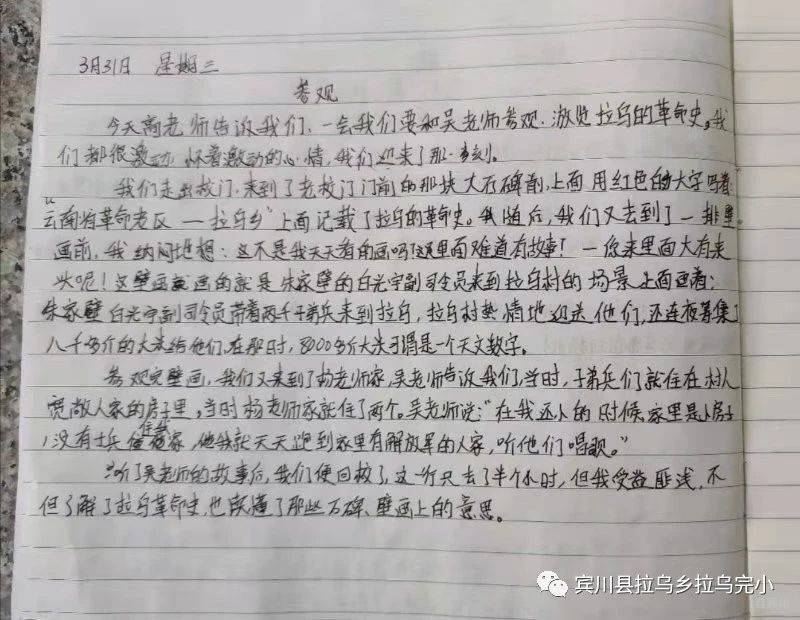 3月31日 星期三
参观
今天高老师告诉我们,一会我们要和吴老师参观.游览拉乌的革命史。我
们都很激动,怀着激动的心情,我们迎来了那一刻。
我们走出校门.来到了老校门门前的那块大石碑前,上面用红色的大字写着
“云南省革命老区—拉乌乡”上面记载了拉乌的革命史。随后,我们又去到了一排壁
画前,我纳闷地想:这不是我天天看的画吗?这里面难道有故事!一你来里面大有来
头呢!这壁画就画的就是朱家璧的白光宇副司令员来到拉乌村的场景上面画着:
朱家璧白光宇副司令员带着两千子弟兵来到拉乌,拉乌村热情地迎送他们,还连夜筹集了
八千多斤的大米给他们.在那时,8000多斤大米可谓是一个天文数字。
参观完壁画,我们又来到了杨老师家,吴老师告诉我们,当时,子弟兵们就住在村人
宽敞人家的房子里,当时杨老师家就住了两个。吴老师说:“在我还小的时候家里是小房子
,没有士兵住我家,我就天天跑到家里有解放军的人家,听他们唱歌。”
听了吴老师的故事后,我们便回校了,这一行只去了半个小时,但我受益匪浅,不
但了解了拉乌革命史,也读懂了那些石碑、壁画上的意思。
宾川县拉乌乡拉乌完小